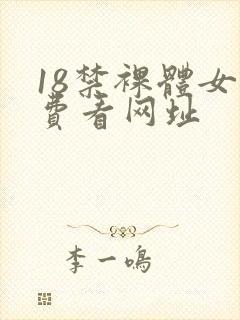 18禁裸體女
費看网址
李一鳴